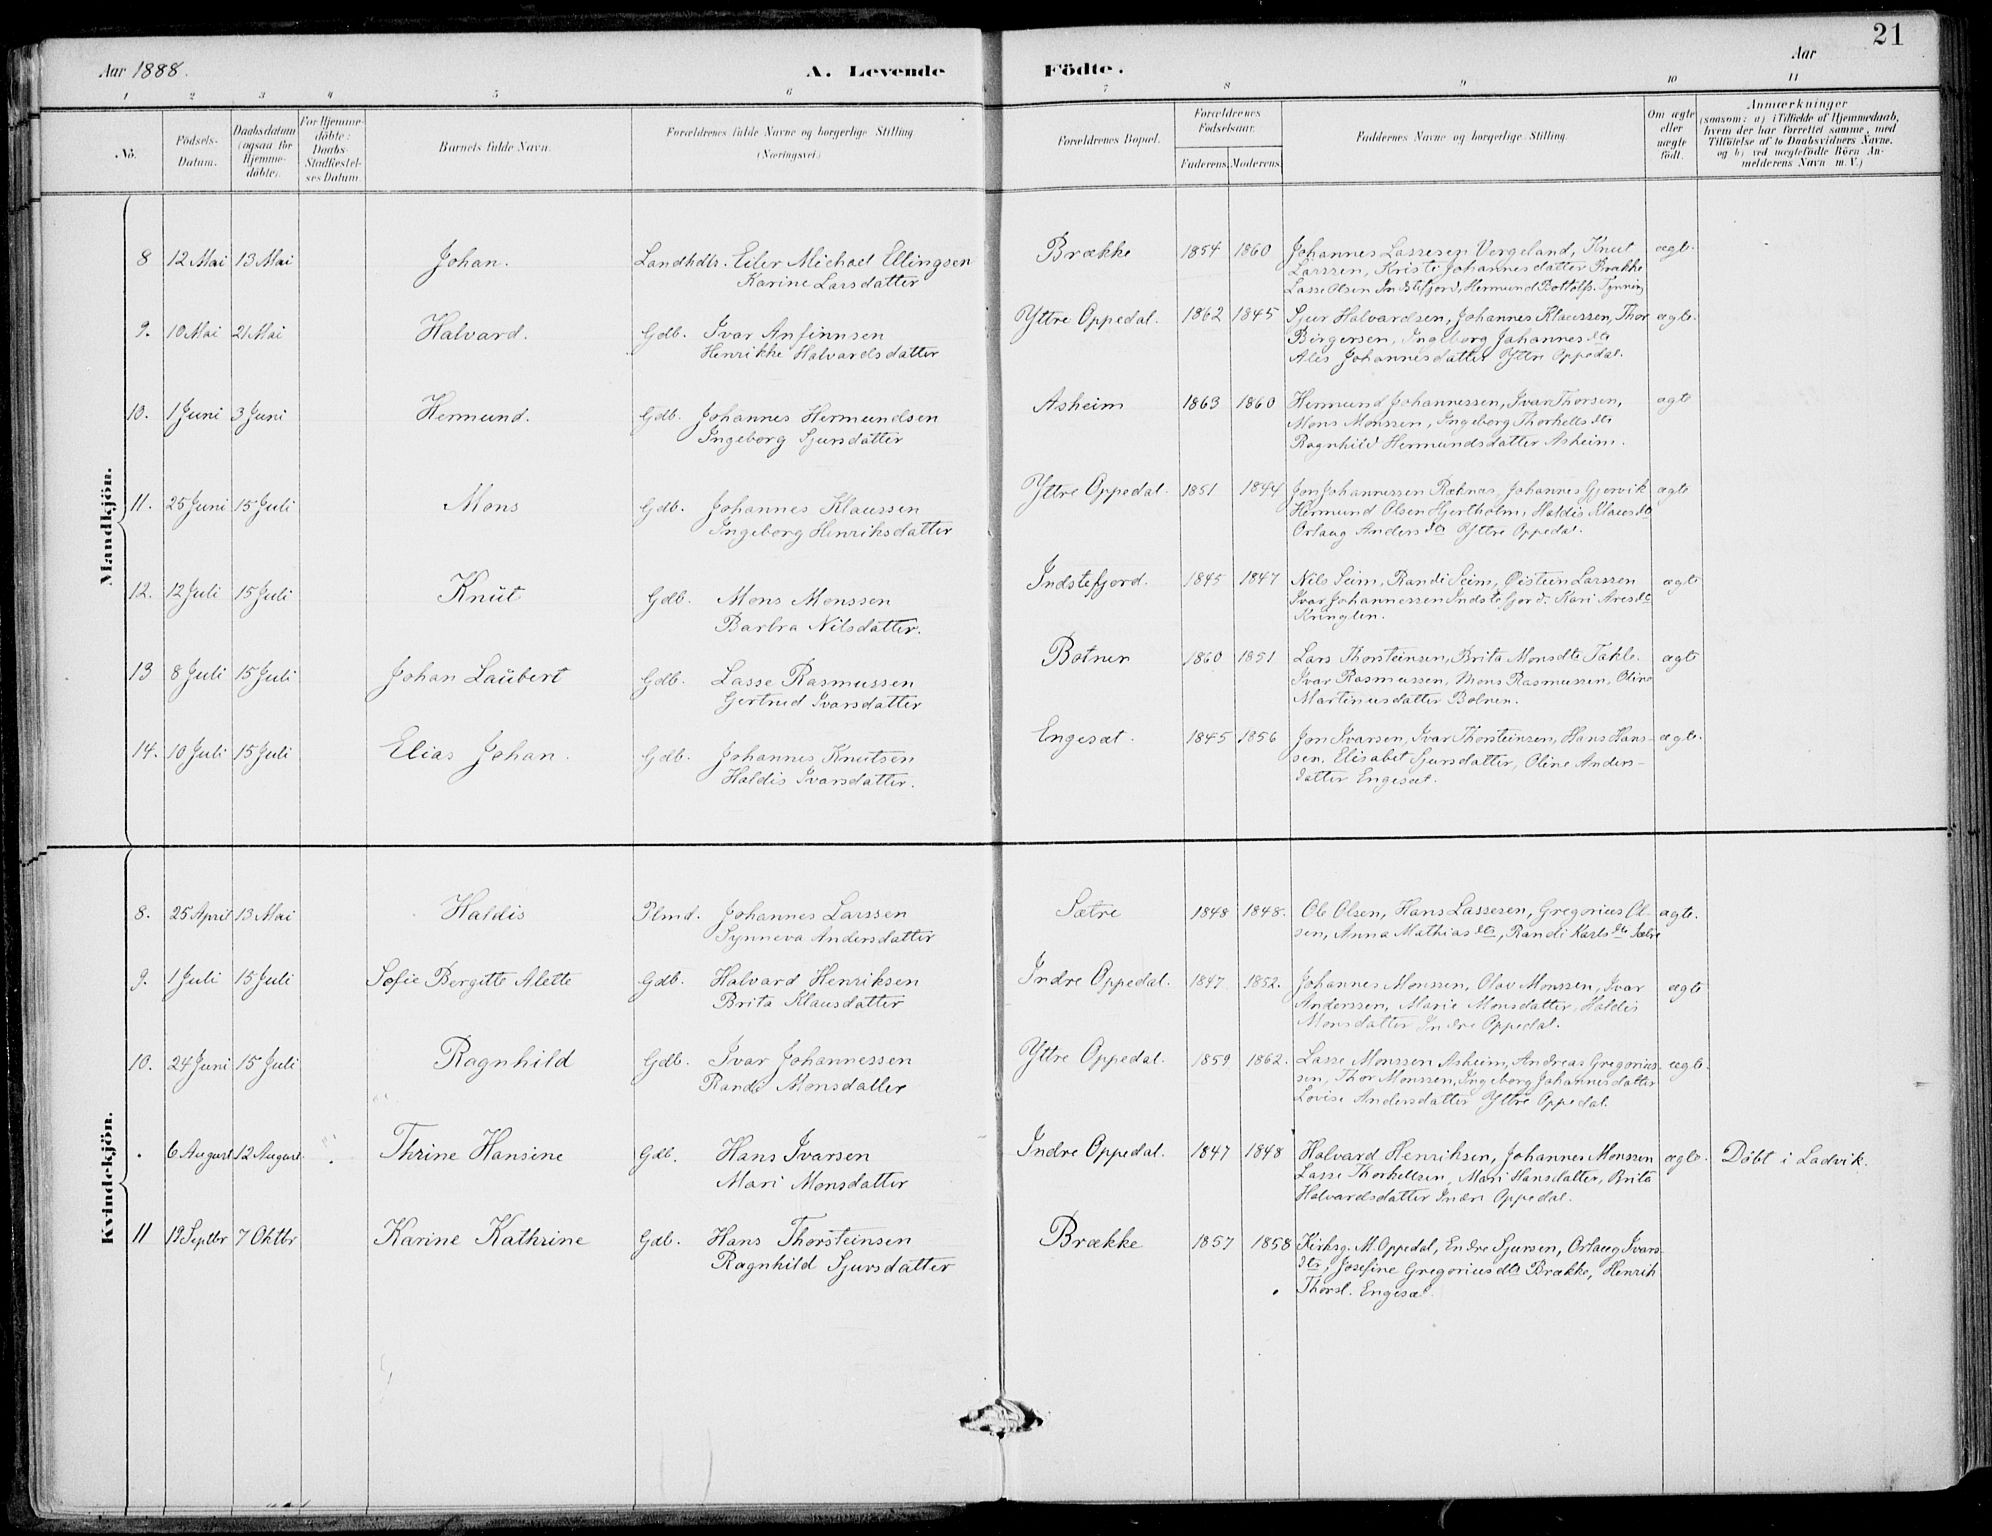 21
Aar 1888.
A. Levende
Födte.
Aar
1 2 3 4 5 6 7 8 9 10 11
No.
Födsels-
Datum.
Daabsdatum
(ogsaa for
Hjemme-
döbte).
For Hjemme-
döbte:
Daabs-
Stadfæstel-
ses Datum.
Barnets fulde Navn.
Forældrenes fulde Navne og borgerlige Stilling
(Næringsvei.)
Forældrenes Bopæl.
Forældrenes
Födselsaar.
Faderens. Moderens.
Faddernes Navne og borgerlige Stilling.
Om ægte
eller
uægte
födt.
Anmærkninger
(saasom: a) i Tilfælde af Hjemmedaab,
hvem der har forrettet samme, med
Tilföielse af to Daabsvidners Navne,
og b) ved uægtefödte Börn An-
melderens Navn m. V.)
Mandkjön.
8 12 Mai 13 Mai Johan. Landhdlr. Eiler Michael Ellingsen
Karine Larsdatter
Brække 1854 1860 Johannes Lassesen Vergeland, Knut ægte.
Larssen, Kristi Johannesdatter Brække
Lasse Olsen Indstefjord, Hermund Bottolfs. Tynning
9. 10 Mai 21 Mai Halvard. Gdb. Ivar Anfinnsen
Henrikke Halvardsdatter
Yttre Oppedal. 1862 1845 Sjur Halvardsen, Johannes Klaussen, Thor ægte.
Birgersen, Ingeborg Johannesdtr
Ales Johannesdatter Yttre Oppedal.
10. 1 Juni 3 Juni Hermund. Gdb. Johannes Hermundsen
Ingeborg Sjursdatter
Asheim 1863 1860 Hermund Johannessen, Ivar Thorsen, ægte
Mons Monssen, Ingeborg Thorkellsdtr
Ragnhild Hermundsdatter Asheim.
11. 25 Juni 15 Juli Mons Gdb. Johannes Klaussen
Ingeborg Henriksdatter
Yttre Oppedal. 1851 1844 Jon Johannessen Ræbnæs, Johannes Gjervik ægte
Hermund Olsen Hjertholm, Haldis Klausdtr
Orlaug Andersdtr Yttre Oppedal.
12. 12 Juli 15 Juli Knut Gdb. Mons Monssen
Barbra Nilsdatter.
Indstefjord. 1845 1847 Nils Seim, Randi Seim, Øistein Larssen ægte
Ivar Johannessen Indstefjord. Kari Aresdtr
Kringlen.
13 8 Juli 15 Juli Johan Laubert Gdb. Lasse Rasmussen
Gertrud Ivarsdatter
Botnen 1860 1851 Lars Thorsteinsen, Brita Monsdtr Takle. ægte
Ivar Rasmussen, Mons Rasmussen, Oline
Martinusdatter Botnen.
14. 10 Juli 15 Juli Elias Johan. Gdb. Johannes Knutsen
Haldis Ivarsdatter.
Engesæt. 1845 1856 Jon Ivarsen, Ivar Thorsteinsen, Hans Hans- ægte.
sen. Elisabet Sjursdatter, Oline Anders-
datter Engesæt.
Kvindekjön.
8. 25 April 13 Mai Haldis Plmd. Johannes Larssen
Synneva Andersdatter
Sætre 1848 1848. Ole Olsen, Hans Lassesen, Gregorius Ol- ægte.
sen, Anna Mathiasdtr, Randi Karlsdtr Sætre
9. 1 Juli 15 Juli Sofie Bergitte Alette Gdb. Halvard Henriksen
Brita Klausdatter
Indre Oppedal. 1847 1852. Johannes Monssen, Olav Monssen, Ivar ægte
Anderssen, Marie Monsdatter, Haldis
Monsdatter Indre Oppedal.
10. 24 Juni 15 Juli Ragnhild Gdb. Ivar Johannessen
Randi Monsdatter
Yttre Oppedal. 1859 1862. Lasse Monssen Asheim, Andreas Gregorius- ægte.
sen, Thor Monssen, Ingeborg Johannesdatter
Lovise Andersdatter Yttre Oppedal.
6 August 12 August Thrine Hansine Gdb. Hans Ivarsen
Mari Monsdatter
Indre Oppedal. 1847 1848 Halvard Henriksen, Johannes Monssen ægte. Døbt i Ladvik.
Lasse Thorkellsen, Mari Hansdatter, Brita
Halvardsdatter Indre Oppedal.
11 19 Septbr 7 Oktbr Karine Kathrine Gdb. Hans Thorsteinsen
Ragnhild Sjursdatter
Brække 1857 1858 Kirksg. M. Oppedal, Endre Sjursen, Orlaug Ivars-
dtr, Josefine Gregoriusdtr Brække, Henrik
Thorst. Engesæt.